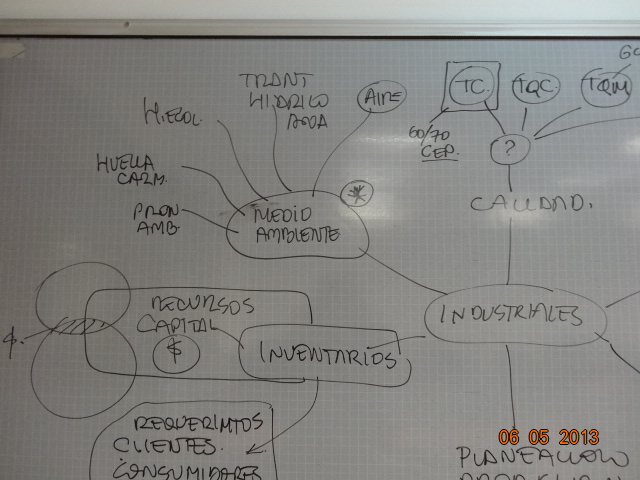 TRANT
HIDRICO
AGUA
AIRE
H.ECOL.
HUELLA
CARM.
PRON
AMB.
MEDIO
AMBIENTE
*
TC.
TQC.
TQM
GC
60/70
CEP.
?
CALIDAD.
INDUSTRIALES
RECURSOS
CAPITAL
$
$.
INVENTARIOS
REQUERIMTOS
CLIENTES.
CONSUMIDORES
06 05 2013